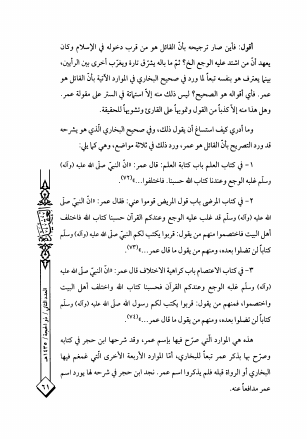 أقول: فأين صار ترجيحه بأنّ القائل هو من قرب دخوله في الإسلام وكان
يعهد أنّ من اشتد عليه الوجع الخ؟ ثمّ ما باله يشرّق تارة ويغرّب أخرى بين الرأيين،
بينما يعترف هو بنفسه تبعاً لما ورد في صحيح البخاري في الموارد الآتية بأنّ القائل هو
عمر. فأي أقواله هو الصحيح؟ ليس ذلك منه إلاّ استماتة في الستر على مقولة عمر.
وهل هذا منه إلاّ كذباً من القول وتمويهاً على القارئ وتشويهاً للحقيقة.
وما أدري كيف استساغ أن يقول ذلك، وفي صحيح البخاري الّذي هو يشرحه
قد ورد التصريح بأنّ القائل هو عمر، ورد ذلك في ثلاثة مواضع، وهي كما يلي:
١ – في كتاب العلم باب كتابة العلم: قال عمر: «انّ النبيّ صلى الله عليه (وآله)
وسلّم غلبه الوجع وعندنا كتاب الله حسبنا. فاختلفوا...»(٧٢).
٢ – في كتاب المرضى باب قول المريض قوموا عني: فقال عمر: «انّ النبيّ
صلى الله عليه (وآله) وسلّم قد غلب عليه الوجع وعندكم القرآن حسبنا كتاب الله فاختلف
أهل البيت فاختصموا منهم من يقول: قربوا يكتب لكم النبيّ صلى الله عليه (وآله) وسلّم
كتاباً لن تضلوا بعده، ومنهم من يقول ما قال عمر...»(٧٣).
٣ – في كتاب الاعتصام باب كراهية الاختلاف قال عمر: «انّ النبيّ صلى الله
عليه (وآله) وسلّم غلبه الوجع وعندكم القرآن فحسبنا كتاب الله واختلف أهل البيت
واختصموا، فمنهم من يقول: قربوا يكتب لكم رسول الله صلى الله عليه (وآله) وسلّم
كتاباً لن تضلوا بعده، ومنهم من يقول ما قال عمر...»(٧٤).
هذه هي الموارد الّتي صرّح فيها بإسم عمر، وقد شرحها ابن حجر في كتابه
وصرّح بها بذكر عمر تبعاً للبخاري، أمّا الموارد الأربعة الأخرى الّتي غمغم فيها
البخاري أو الرواة قبله فلم يذكروا اسم عمر. نجد ابن حجر في شرحه لها يورد اسم
عمر مدافعاً عنه.
العدد الثاني / ذو الحجة / ١٤٣٥هـ
٦١